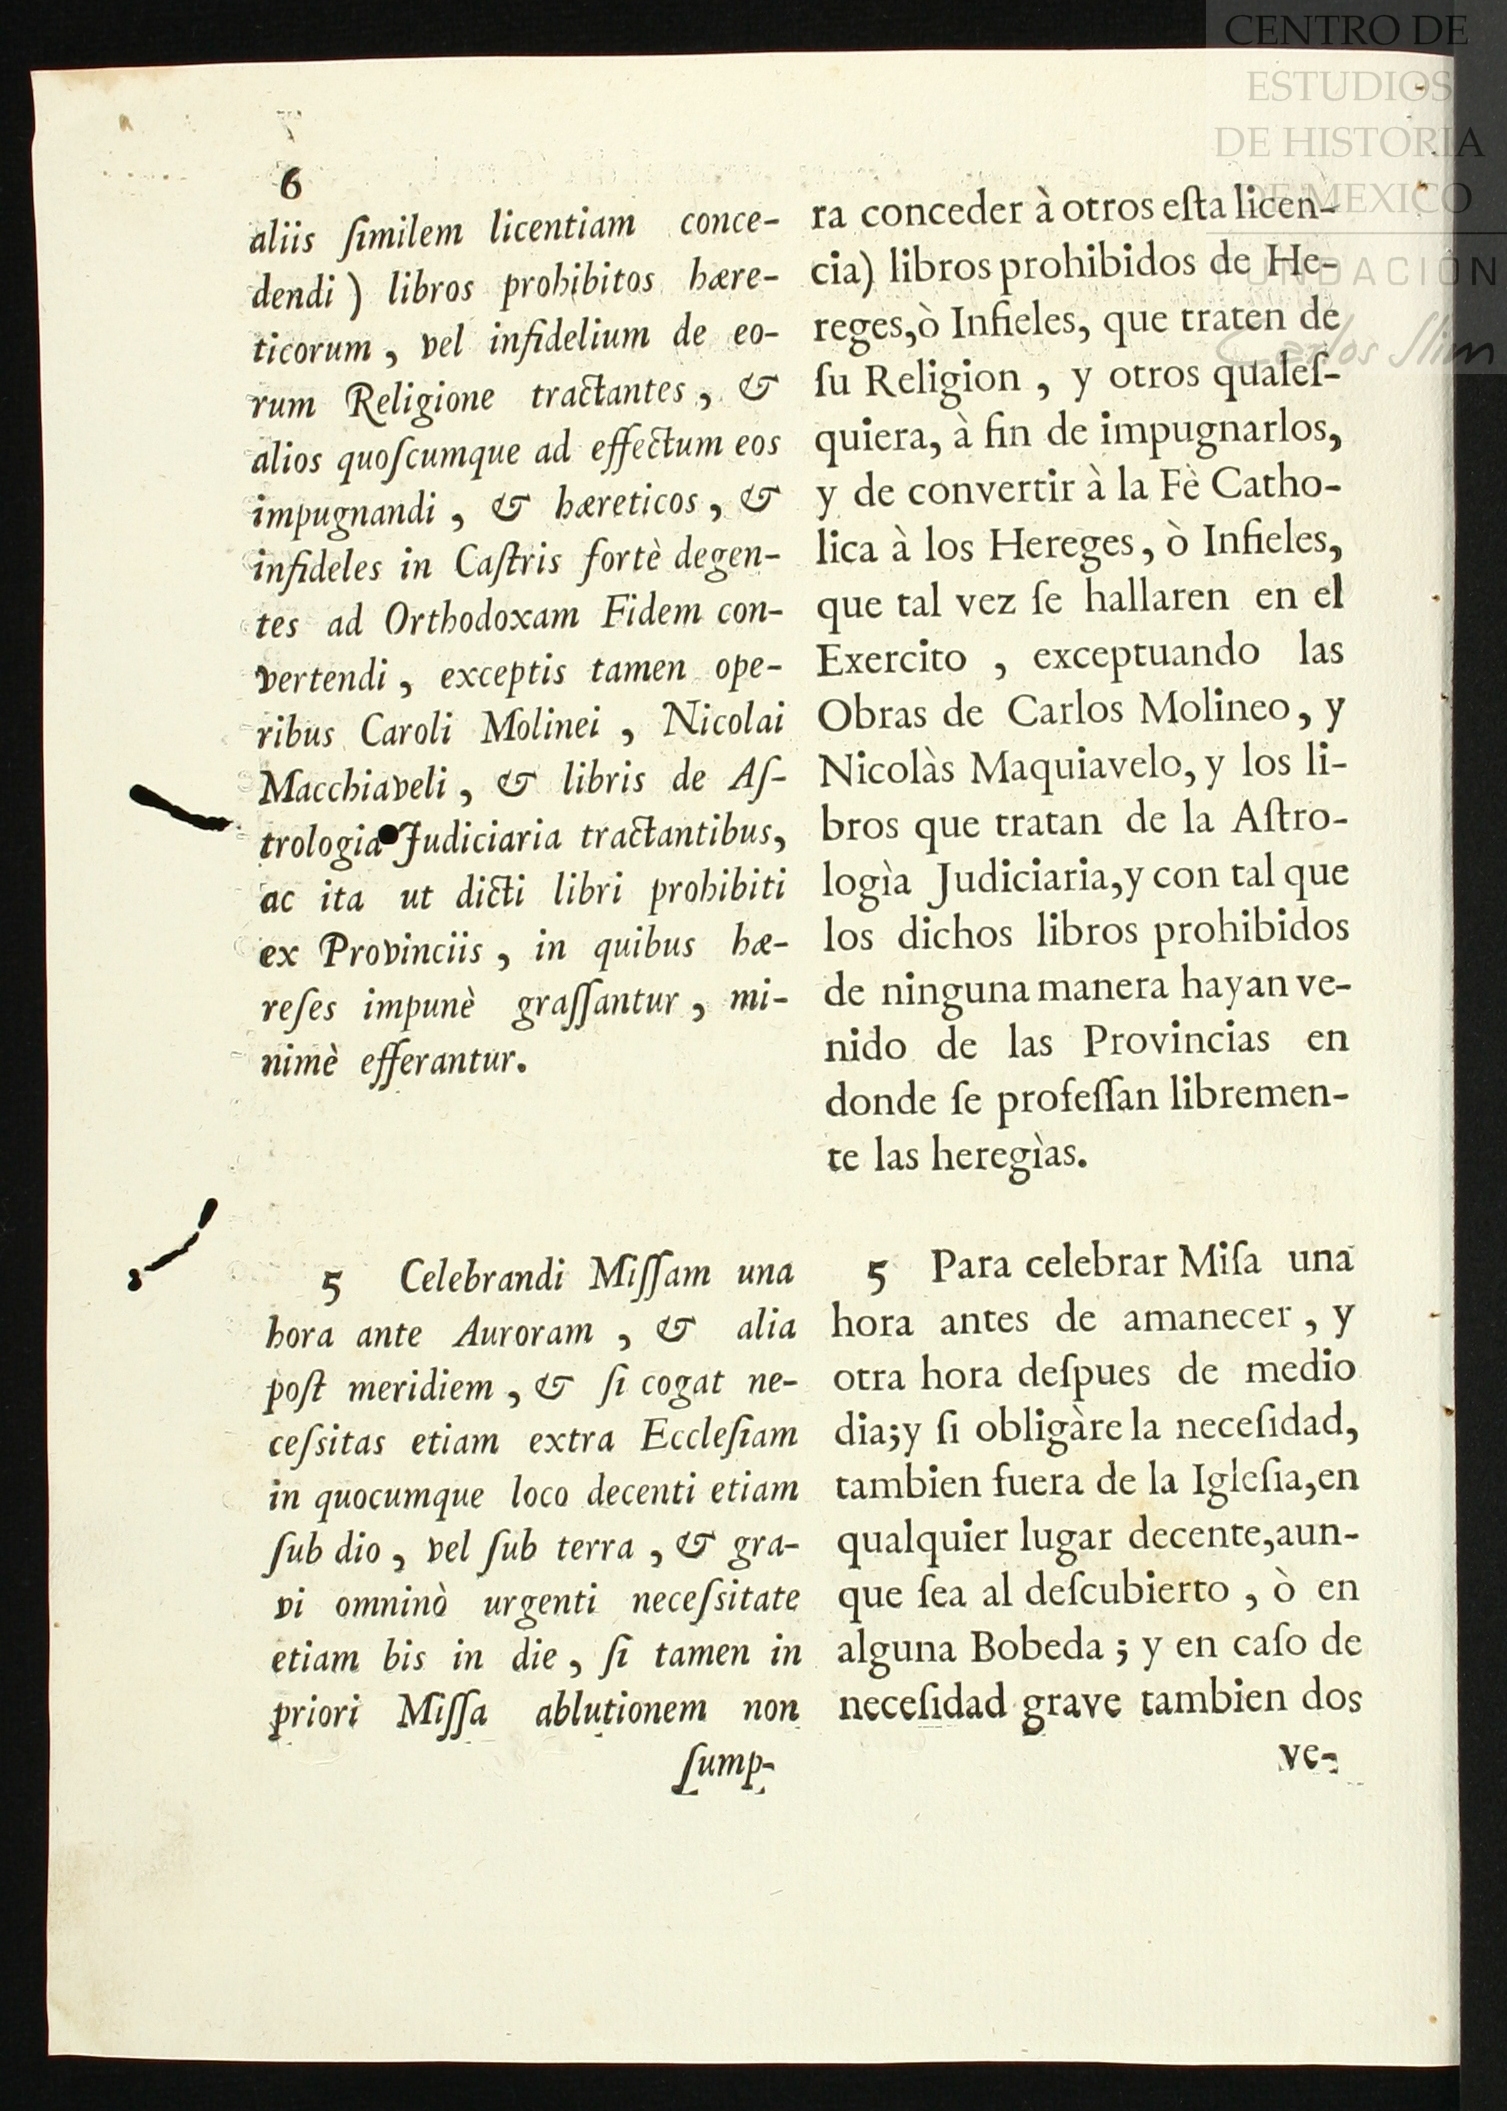 6
aliis ſimilem licentiam conce-
dendi ) libros prohibitos hære-
ticorum , vel infidelium de eo-
rum Religione tractantes , &
alios quoſcumque ad effectum eos
impugnandi , & hæreticos , &
infideles in Caſtris fortè degen-
tes ad Orthodoxam Fidem con-
vertendi , exceptis tamen ope-
ribus Caroli Molinei , Nicolai
Macchiaveli , & libris de Aſ-
trologia Judiciaria tractantibus,
ac ita ut dicti libri prohibiti
ex Provinciis , in quibus hæ-
reſes impunè graſſantur , mi-
nimè efferantur.
5 Celebrandi Miſſam una
hora ante Auroram , & alia
poſt meridiem , & ſi cogat ne-
ceſsitas etiam extra Eccleſiam
in quocumque loco decenti etiam
ſub dio , vel ſub terra , & gra-
vi omninò urgenti neceſsitate
etiam bis in die , ſi tamen in
priori Miſſa ablutionem non
ſump-
ra conceder à otros eſta licen-
cia) libros prohibidos de He-
reges,ò Infieles, que traten de
ſu Religion , y otros qualeſ-
quiera, à fin de impugnarlos,
y de convertir à la Fè Catho-
lica à los Hereges, ò Infieles,
que tal vez ſe hallaren en el
Exercito , exceptuando las
Obras de Carlos Molineo, y
Nicolàs Maquiavelo, y los li-
bros que tratan de la Aſtro-
logìa Judiciaria,y con tal que
los dichos libros prohibidos
de ninguna manera hayan ve-
nido de las Provincias en
donde ſe profeſſan libremen-
te las heregìas.
5 Para celebrar Miſa una
hora antes de amanecer , y
otra hora deſpues de medio
dia;y ſi obligàre la neceſidad,
tambien fuera de la Igleſia,en
qualquier lugar decente,aun-
que ſea al deſcubierto , ò en
alguna Bobeda ; y en caſo de
neceſidad grave tambien dos
ve-
CENTRO DE
ESTUDIOS
DE HISTORIA
DE MEXICO
FUNDACIÓN
Carlos Slim